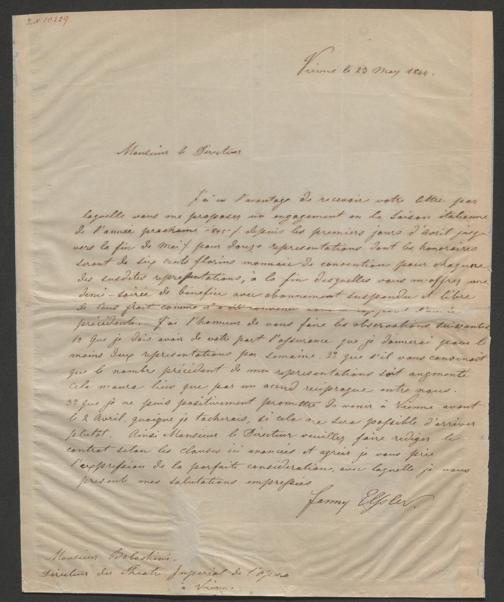 Vienne le 23 May 1844.
Monsieur le Directeur
J'ai eu l'avantage de recevoir votre lettre par
laquelle vous me proposez un engagement en la saison italienne
de l'année prochaine depuis les premiers jours d'Avril jusque
vers la fin de Mai pour douze representations dont les honoraires
seront de six cents florins monnaie de convention pour chaqune
des susdites representations, à la fin desquelles vous m'offrez une
demi-soirée de benefice avec abonnement suspendu et libre
de tous frais comme
précédente. J'ai l'honneur de vous faire les observations suivantes
1º que je dois avoir de votre part l'assurance que je danserai pour le
moins deux representations par semaine. 2º que s'il vous convenait
que le nombre précédent de mes representations soit augmenté
cela n'aura lieu que par un accord reciproque entre nous.
3º que je ne puis positivement promettre de venir à Vienne avant
le 2 Avril, quoique je tacherais, si cela me sera possible d'arriver
plutôt. Ainsi Monsieur le Directeur veuillez faire rediger le
contrat selon les clauses ici enoncées et agréer je vous prie
l'expression de la parfaite consideration, avec laquelle je vous
presente mes salutations empressées
Fanny Elssler
Monsieur Balochino.
Directeur du Theatre Imperial de l'Opera
à Vienne